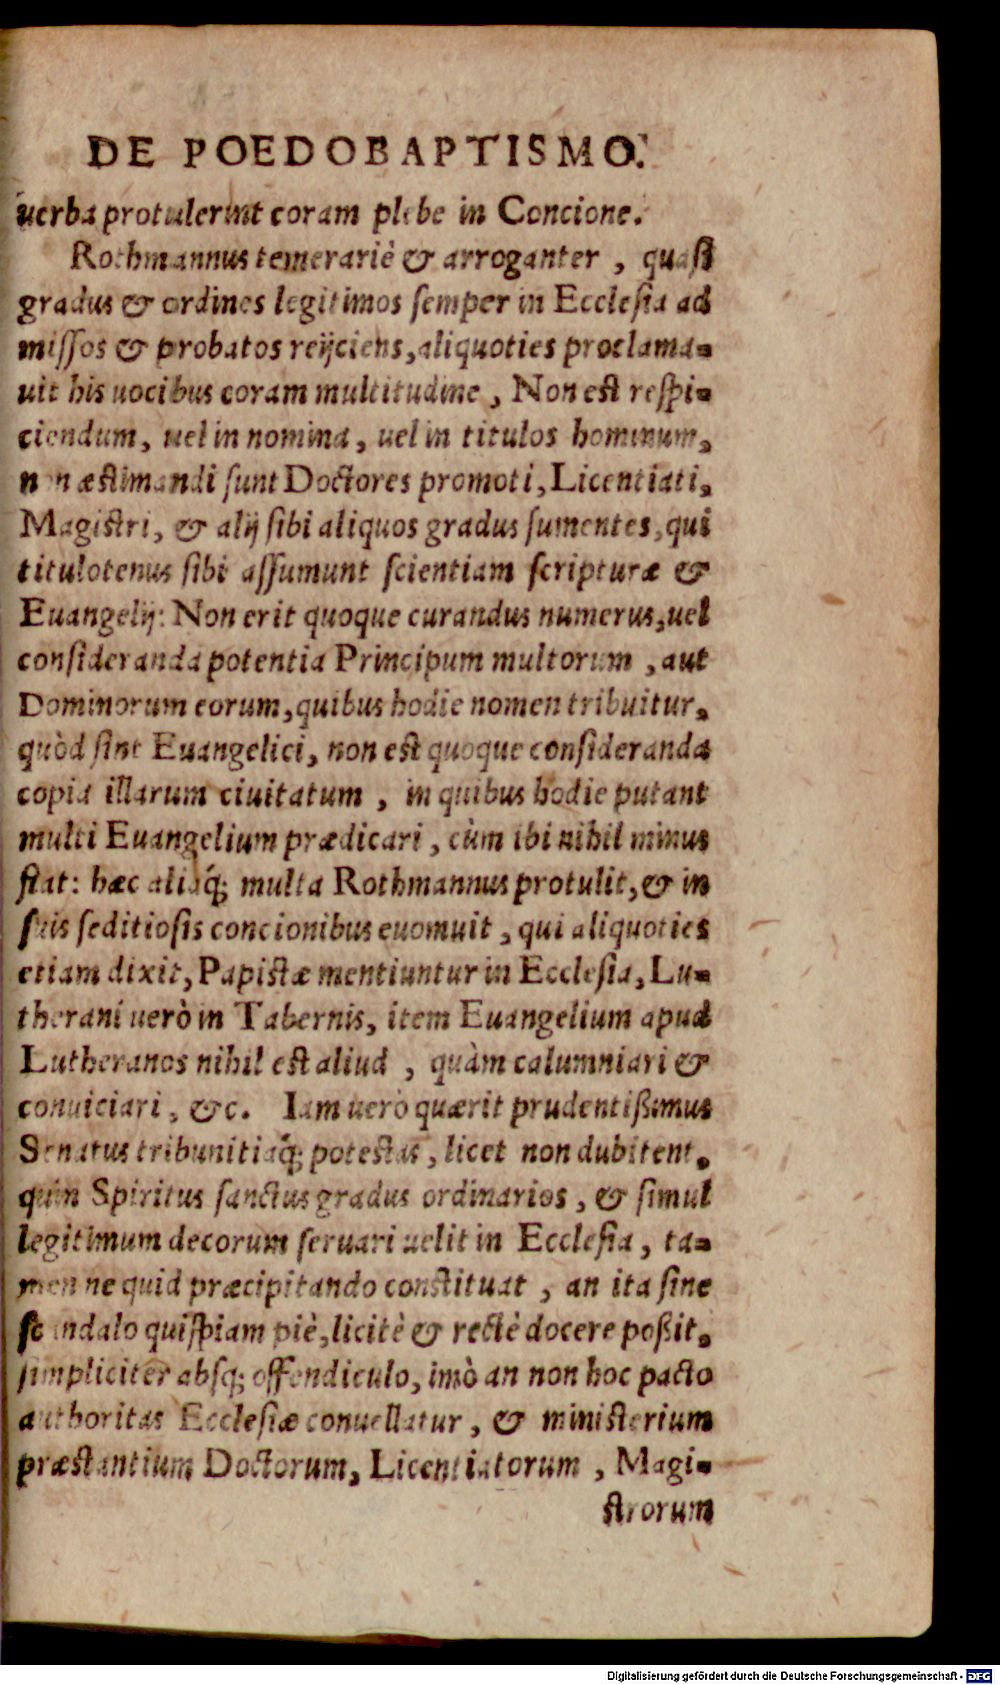 DE POEDOBAPTISMO.
uerba protulerint coram plebe in Concione.
Rothmannus temerariè & arroganter, quasi
gradus & ordines legitimos semper in Ecclesia ad
missos & probatos reijciens, aliquoties proclama-
uit his uocibus coram multitudine, Non est respi-
ciendum, uel in nomina, uel in titulos hominum,
non æstimandi sunt Doctores promoti, Licentiati,
Magistri, & alij sibi aliquos gradus sumentes, qui
titulotenus sibi assumunt scientiam scripturæ &
Euangelij: Non erit quoque curandus numerus, uel
consideranda potentia Principum multorum, aut
Dominorum eorum, quibus hodie nomen tribuitur,
quòd sint Euangelici, non est quoque consideranda
copia illarum ciuitatum, in quibus hodie putant
multi Euangelium prædicari, cùm ibi nihil minus
fiat: hæc aliaq́; multa Rothmannus protulit, & in
suis seditiosis concionibus euomuit, qui aliquoties
etiam dixit, Papistæ mentiuntur in Ecclesia, Lu-
therani uerò in Tabernis, item Euangelium apud
Lutheranos nihil est aliud, quàm calumniari &
conuiciari, &c. Iam uerò quærit prudentißimus
Senatus tribunitiaq́; potestas, licet non dubitent,
quin Spiritus sanctus gradus ordinarios, & simul
legitimum decorum seruari uelit in Ecclesia, ta-
men ne quid præcipitando constituat, an ita sine
scandalo quispiam piè, licitè & rectè docere poßit,
simpliciter absq; offendiculo, imò an non hoc pacto
authoritas Ecclesiæ conuellatur, & ministerium
præstantium Doctorum, Licentiatorum, Magi-
strorum
Digitalisierung gefördert durch die Deutsche Forschungsgemeinschaft - DFG